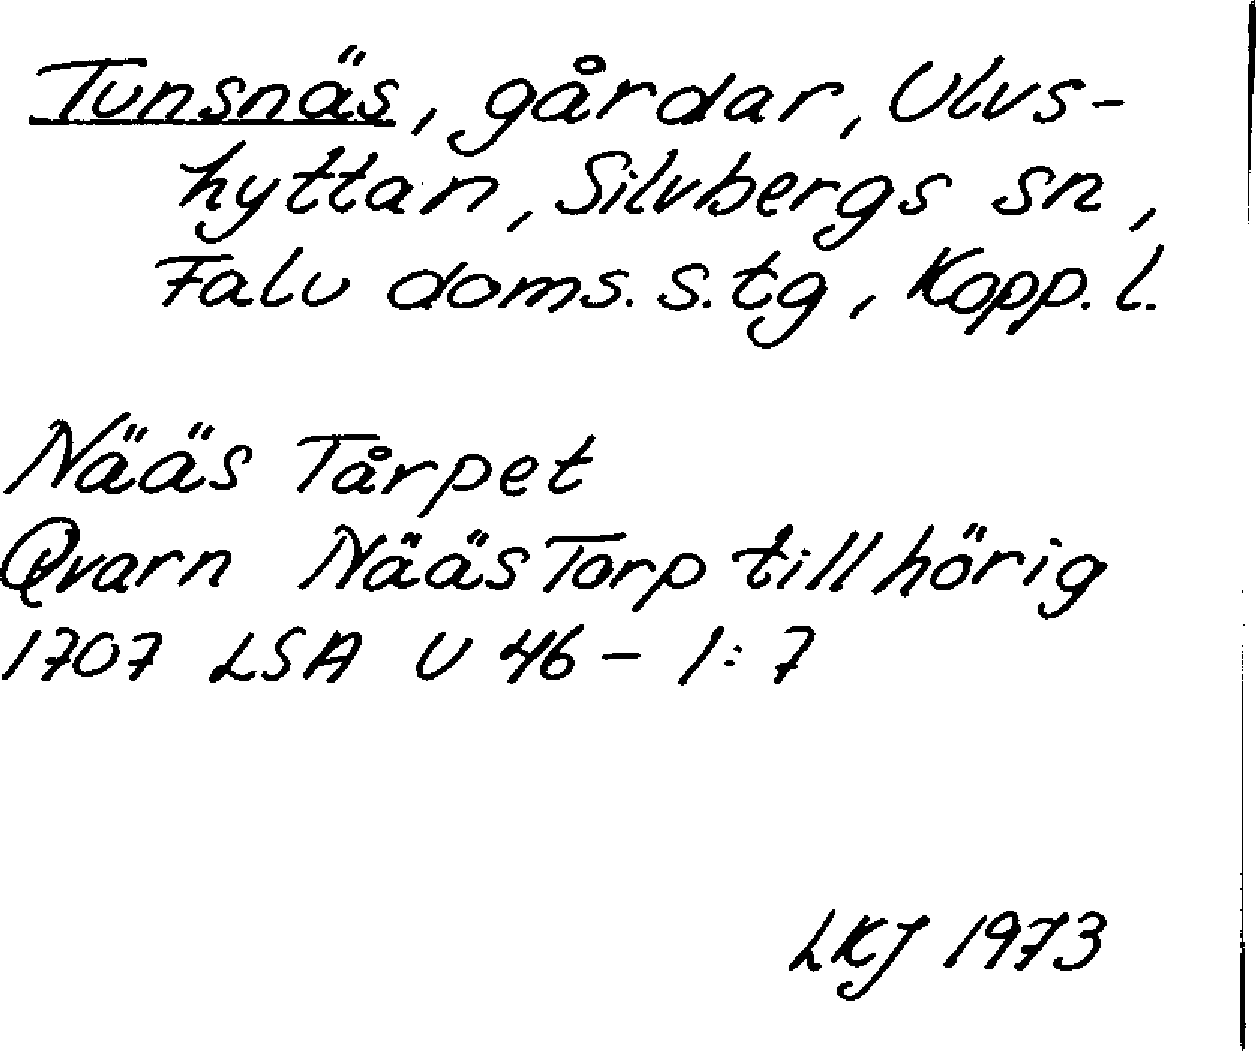 Tunsnäs, gårdar, Ulvs-
hyttan, Silvbergs sn,
Falu doms. s. tg, Kopp. l.
Nääs Tårpet
Qvarn Nääs Torp tillhörig
1707 LSA U 46 - 1:7
LKJ 1973